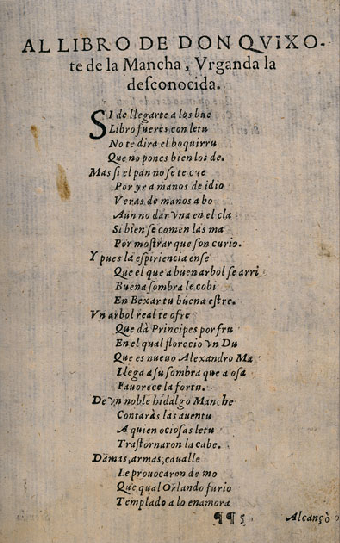 AL LIBRO DE DON QVIXO-
te de la Mancha, Vrganda la
desconocida.
SI de llegarte a los bue
Libro fueres con letu
No te dira el boquirru
Que no pones bien los de.
Mas si el pan no se te cue
Por yr a manos de idio
Veras de manos a bo
Aun no dar vna en el cla
Si bien se comen las ma
Por mostrar que son curio.
Y pues la espiriencia ense
Que el que a buen arbol se arri
Buena sombra le cobi
En Bexar tu buena estre.
Vn arbol real te ofre
Que da Principes por fru
En el qual florecio vn Du
Que es nueuo Alexandro Ma
Llega a su sombra que a osa
Fauorece la fortu.
De vn noble hidalgo Manche
Contaràs las auentu
A quien ociosas letu
Trastornaron la cabe.
Damas, armas, caualle
Le prouocaron de mo
Que qual Orlando furio
Templado a lo enamora
¶¶5
Alcançò